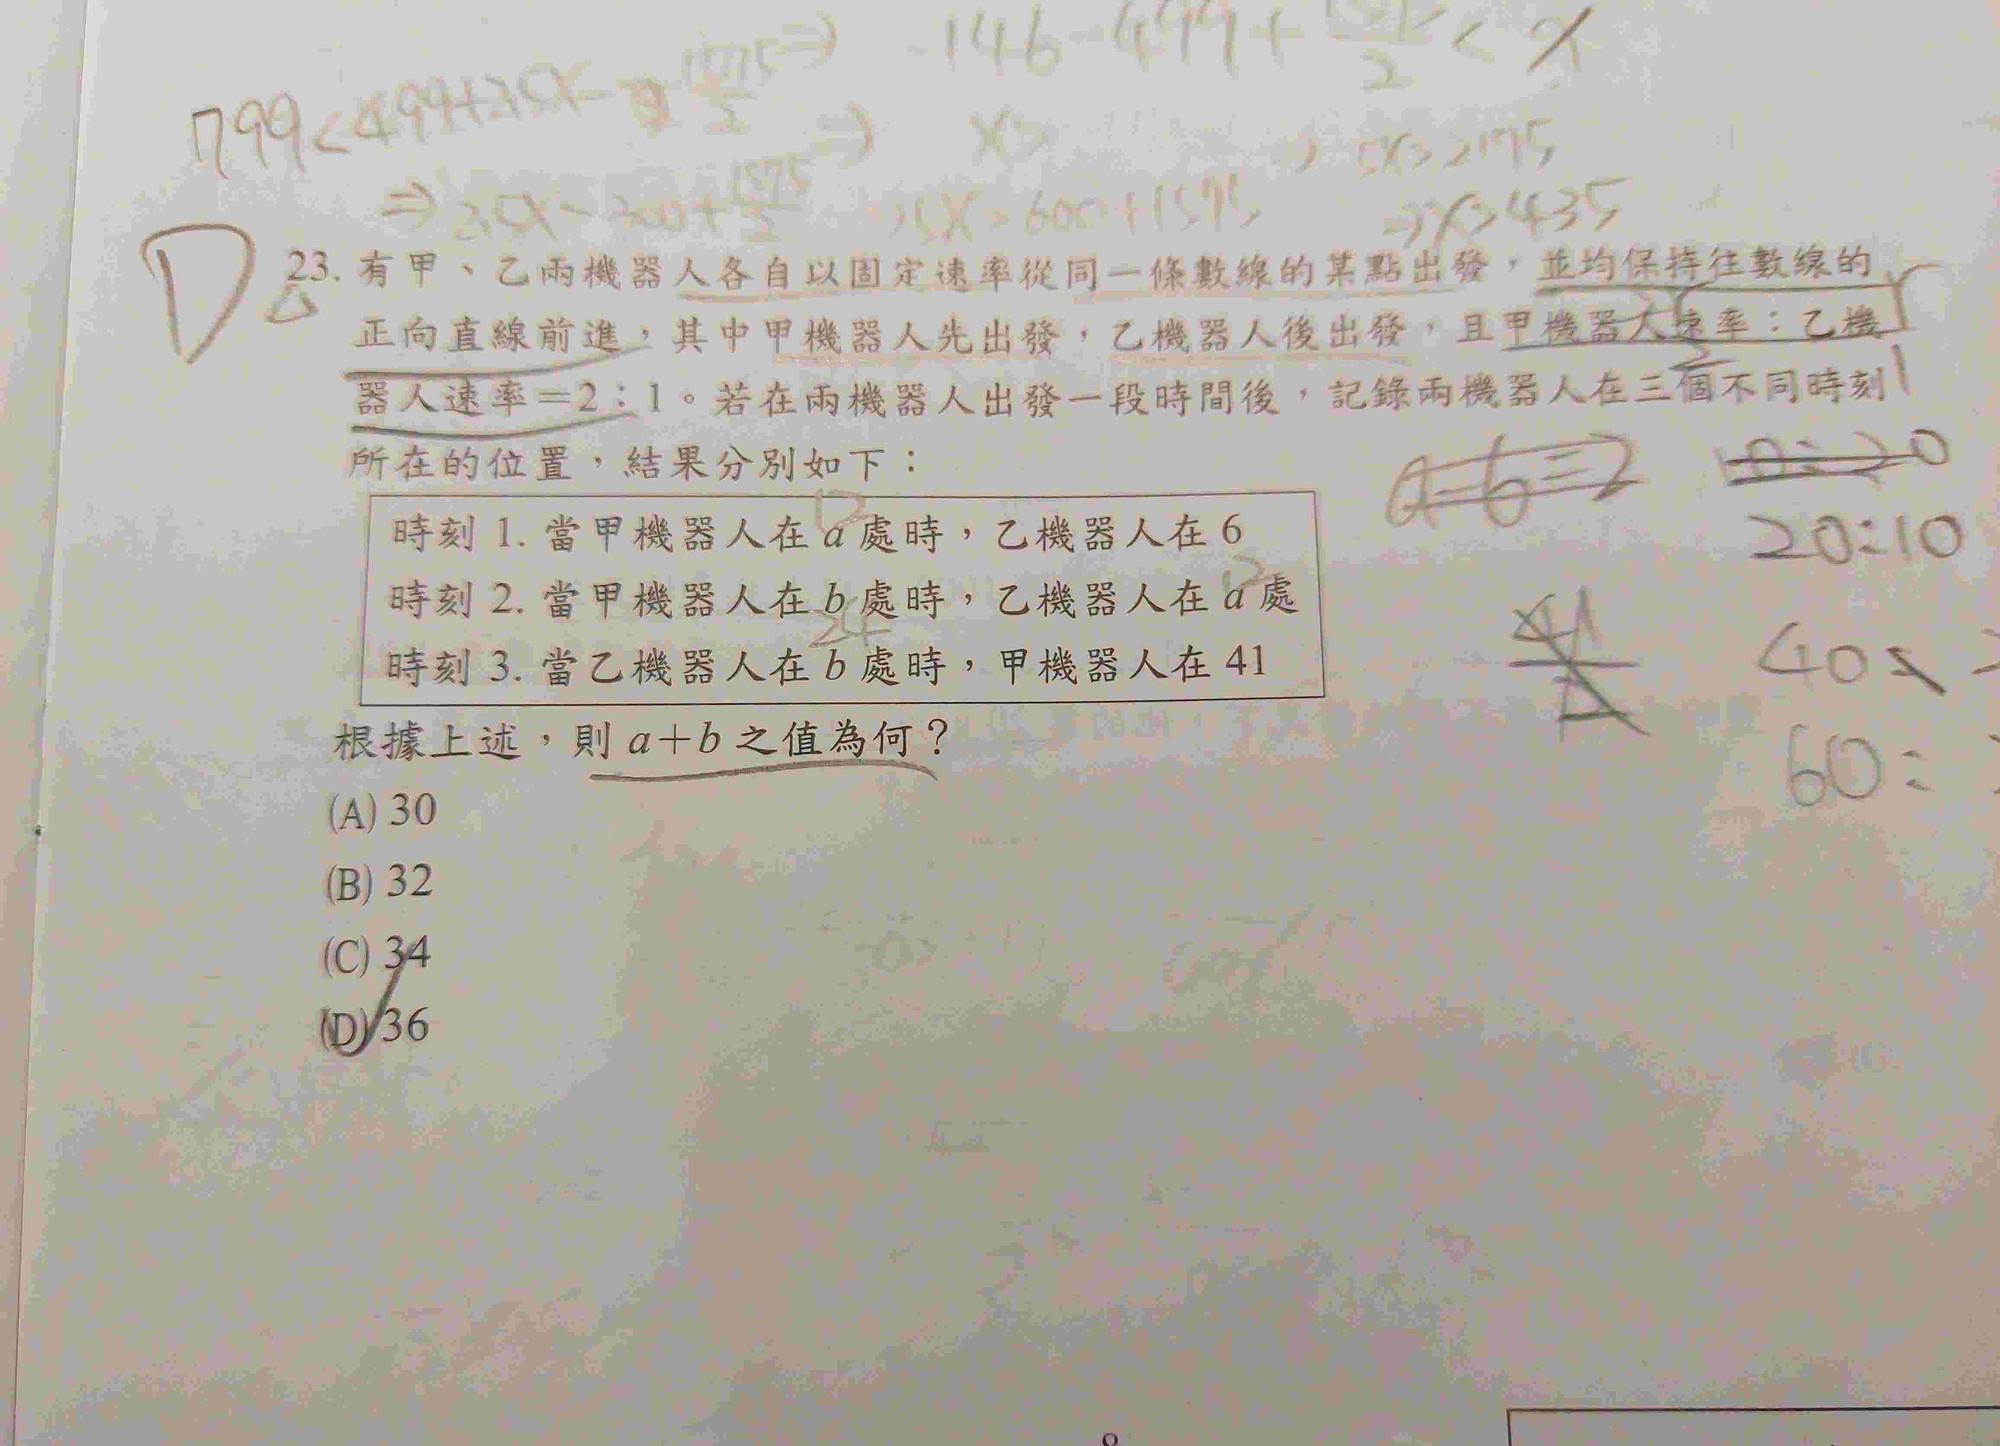 146-499+
2
< x
799<499+35X-
1575
2
⇒
X>
5X>2175
⇒ 35X-300+
1575
2
5X>600+1575
⇒X>435
D
23. 有甲、乙兩機器人各自以固定速率從同一條數線的某點出發，並均保持往數線的
正向直線前進，其中甲機器人先出發，乙機器人後出發，且甲機器人速率：乙機
器人速率＝2：1。若在兩機器人出發一段時間後，記錄兩機器人在三個不同時刻
2
1
所在的位置，結果分別如下：
a=b=2
10:20
20:10
12
時刻 1. 當甲機器人在 a 處時，乙機器人在 6
12
時刻 2. 當甲機器人在 b 處時，乙機器人在 a 處
24
時刻 3. 當乙機器人在 b 處時，甲機器人在 41
40
60:
根據上述，則 a＋b 之值為何？
(A) 30
(B) 32
(C) 34
(D) 36
8